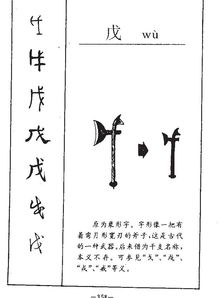 戊 wù
原为象形字。字形像一把有
着弯月形宽刃的斧子,这是古代
的一种武器,后来借为干支名称,
本义不存。可参见“戈”、“戉”、
“戍”、“戚”等义。